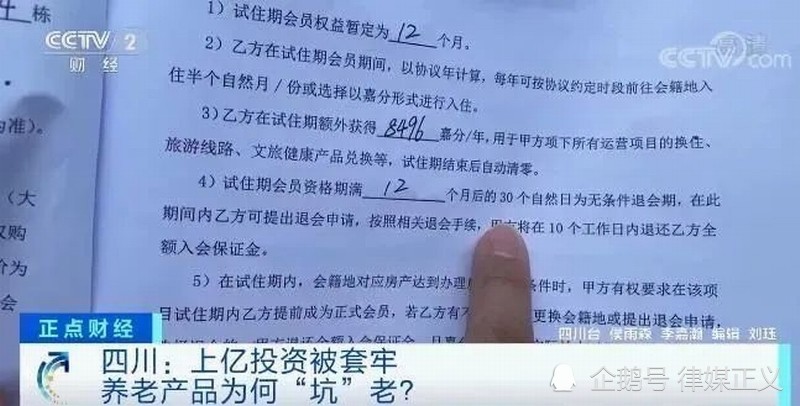 栋
CCTV 2
财经
高清
CCTV.com
1）试住期会员权益暂定为 12 个月。
2）乙方在试住期会员期间，以协议年计算，每年可按协议约定时段前往会籍地入
住半个自然月/份或选择以嘉分形式进行入住。
3）乙方在试住期额外获得 8496 嘉分/年，用于甲方项下所有运营项目的换住、
旅游线路、文旅健康产品兑换等，试住期结束后自动清零。
4）试住期会员资格期满 12 个月后的30个自然日为无条件退会期，在此
期间内乙方可提出退会申请，按照相关退会手续，甲方将在10个工作日内退还乙方全
额入会保证金。
5）在试住期内，会籍地对应房产达到办理 条件时，甲方有权要求在该项
目试住期内乙方提前成为正式会员，若乙方有 更换会籍地或提出退会申请，
为准）。
（大
议购
价为
会
正点财经
四川台 侯雨森 李嘉灏 编辑 刘珏
四川：上亿投资被套牢
养老产品为何“坑”老？
企鹅号 律媒正义